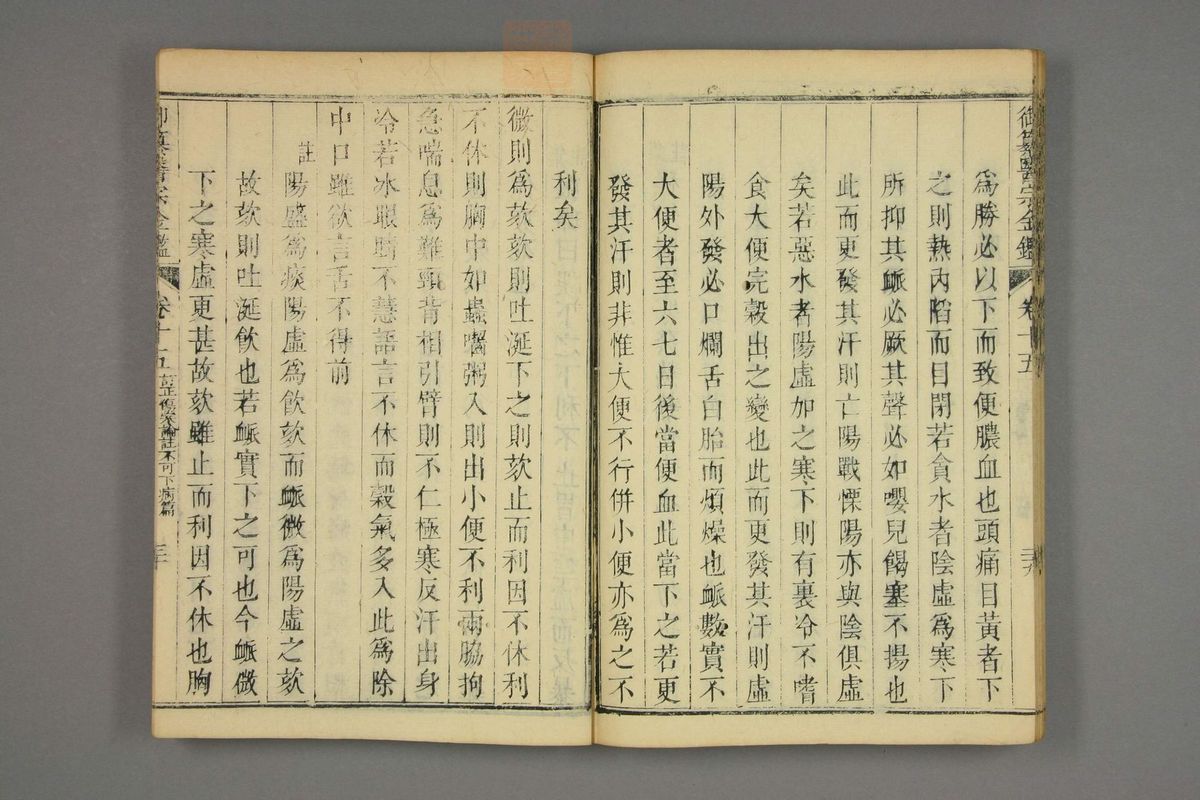 御纂醫宗金鑑 卷十五
爲勝必以下而致便膿血也頭痛目黃者下
之則熱內陷而目閉若貪水者陰虛爲寒下
所抑其脈必厥其聲必如嚶兒餲塞不揚也
此而更發其汗則亡陽戰慄陽亦與陰俱虛
矣若惡水者陽虛加之寒下則有裏冷不嗜
食大便完穀出之變也此而更發其汗則虛
陽外發必口爛舌白胎而煩燥也脈數實不
大便者至六七日後當便血此當下之若更
發其汗則非惟大便不行併小便亦爲之不
利矣
微則爲欬欬則吐涎下之則欬止而利因不休利
不休則胸中如蟲嚙粥入則出小便不利兩脇拘
急喘息爲難頸背相引臂則不仁極寒反汗出身
冷若冰眼睛不慧語言不休而穀氣多入此爲除
中口雖欲言舌不得前
註 陽盛爲痰陽虛爲飲欬而脈微爲陽虛之欬
故欬則吐涎飲也若脈實下之可也今脈微
下之寒虛更甚故欬雖止而利因不休也胸
御纂醫宗金鑑 卷十五 訂正傷寒論註不可下病篇